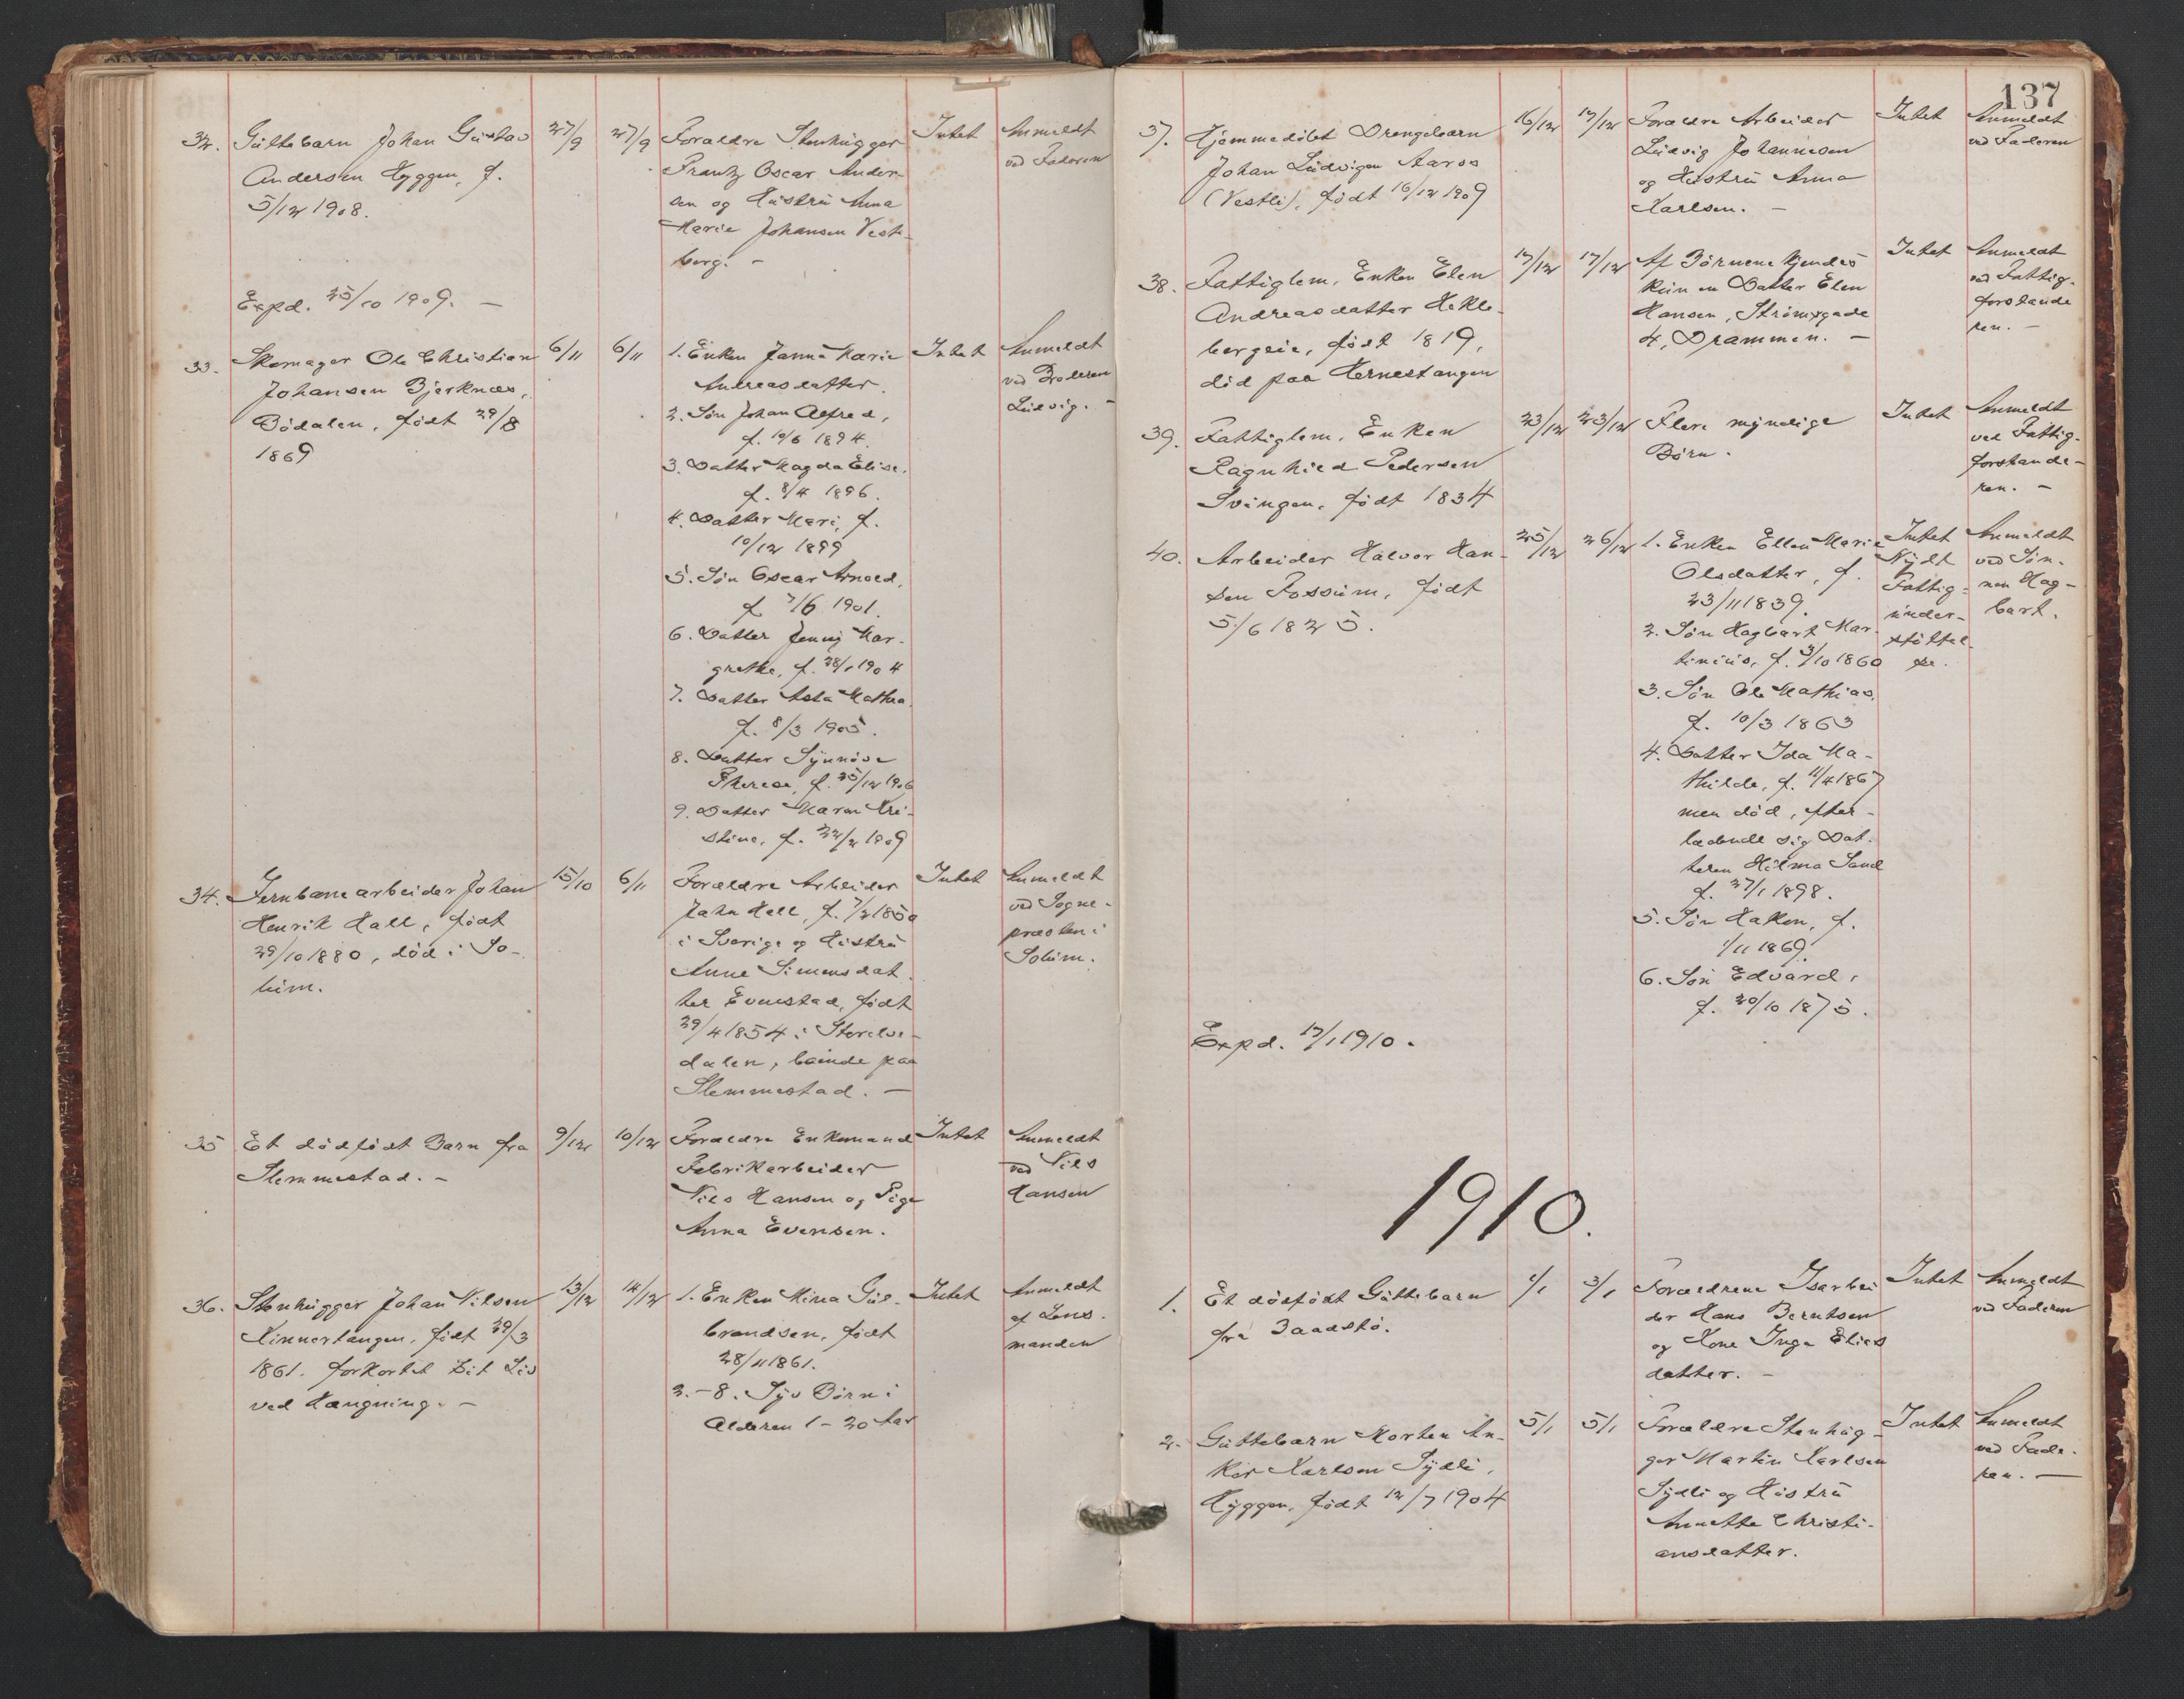 32. Guttebarn Johan Gustav
Andersen Hyggen, f.
5/12 1908.
27/9 27/9
Forældre Stenhugger
Frantz Oscar Ander-
sen og Hustru Anna
Marie Johansen Vest-
berg. -
Intet
Anmeldt
ved Faderen
Expd. 25/10 1909. -
33. Skomager Ole Christian
Johansen Bjerknæs,
Bödalen, född 29/8
1869
6/11 6/11
1. Enken Janna Marie
Andreasdatter.
2. Sön Johan Alfred,
f. 10/6 1894.
3. Datter Magda Elise,
f. 8/4 1896.
4. Datter Mari, f.
10/12 1899
5. Sön Oscar Arnold,
f. 7/6 1901.
6. Datter Jenny Mar-
grethe, f. 28/1 1904
7. Datter Asta Mathea
f. 8/3 1905.
8. Datter Synnöve
Therese, f. 25/12 1906
9. Datter Karen Kri-
stine, f. 22/2 1909
Intet
Anmeldt
ved Broderen
Ludvig. -
34. Jernbanearbeider Johan
Henrik Hall, född
29/10 1880, död i So-
lum.
15/10 6/11
Forældre Arbeider
John Hall, f. 7/2 1850
i Sverige og Hustru
Anne Simensdat-
ter Evenstad, född
29/4 1854 i Storelve-
dalen, boende paa
Slemmestad. -
Intet
Anmeldt
ved Sogne-
præsten i
Solum.
35 Et dödfödt Barn fra
Slemmestad. -
9/12 10/12
Forældre Enkemand
Fabrikarbeider
Nils Hansen og Pige
Anna Evensen.
Intet
Anmeldt
ved Nils
Hansen
36. Stenhugger Johan Nilsen
Kinnertangen, född 29/3
1861. forkortet sit Liv
ved Hængning. -
13/12 14/12
1. Enken Mina Gul-
brandsen, född
28/11 1861.
2.-8. Syv Börn i
Alderen 1-20 Aar
Intet
Anmeldt
af Lens-
manden
137
37. Hjemmedöbt Drengebarn
Johan Ludvigsen Aaros
(Vestli), född 16/12 1909
16/12 17/12
Forældre Arbeider
Ludvig Johannesen
og Hustru Anna
Karlsen. -
Intet
Anmeldt
ved Faderen
38. Fattiglem, Enken Elen
Andreasdatter Hekle-
bergeie, född 1819,
död paa Hernestangen
17/12 17/12
Af Börnene kjendes
kun en Datter Elen
Hansen, Strömsgade
4, Drammen. -
Intet
Anmeldt
ved Fattig-
forstande
ren. -
39. Fattiglem, Enken
Ragnhild Pedersen
Svingen, född 1834
23/12 23/12
Flere myndige
Börn.
Intet
Anmeldt
ved Fattig-
forstande-
ren. -
40. Arbeider Halvor Han-
sen Fossum, född
5/6 1825.
25/12 26/12
1. Enken Ellen Marie
Olsdatter, f.
23/11 1839.
2. Sön Hagbart Mar-
tinius, f. 3/10 1860
3. Sön Ole Mathias,
f. 10/3 1863
4. Datter Ida Ma-
thilde, f. 11/4 1867
men död, efter-
ladende sig Dat-
teren Hilma Sand
f. 27/1 1898.
5. Sön Hakon, f.
1/11 1869.
6. Sön Edvard,
f. 20/10 1875.
Intet
Nydt
Fattig-
under-
stöttel-
se.
Anmeldt
ved Søn-
nen Hag-
bart.
Expd. 17/1 1910.
1910.
1. Et dödfödt Guttebarn
fra Baadstö.
1/1 3/1
Forældrene Isarbei
der Hans Berntsen
og Kone Inga Elies
datter. -
Intet
Anmeldt
ved Faderen
2. Guttebarn Morten An-
ker Karlsen Sydli,
Hyggen, född 12/7 1904
5/1 5/1
Forældre Stenhug-
ger Martin Karlsen
Sydli og Hustru
Annette Christi-
ansdatter.
Intet
Anmeldt
ved Fade-
ren. -